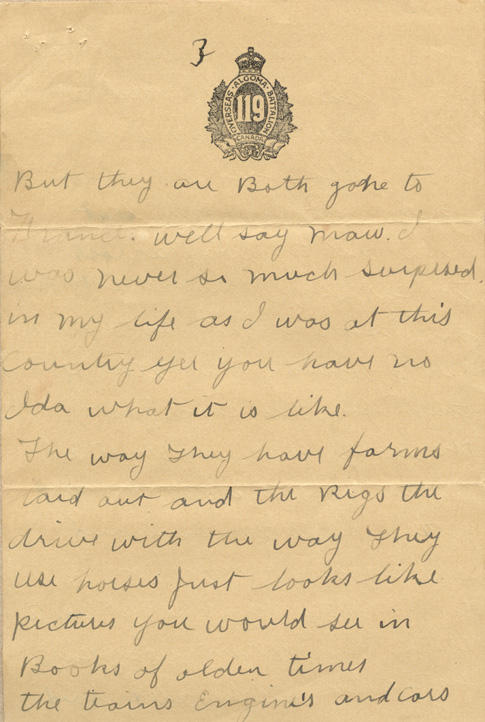 3
OVERSEAS · ALGOMA · BATTALION
119
CANADA
But they are Both gone to
France. well say maw. I
was never so much surpised.
in my life as I was at this
Country yet you have no
Ida what it is like.
The way They have farms
laid out and the Rigs the
drive with the way They
use horses Just looks like
pictures you would see in
Books of olden times
the trains Engines and cars